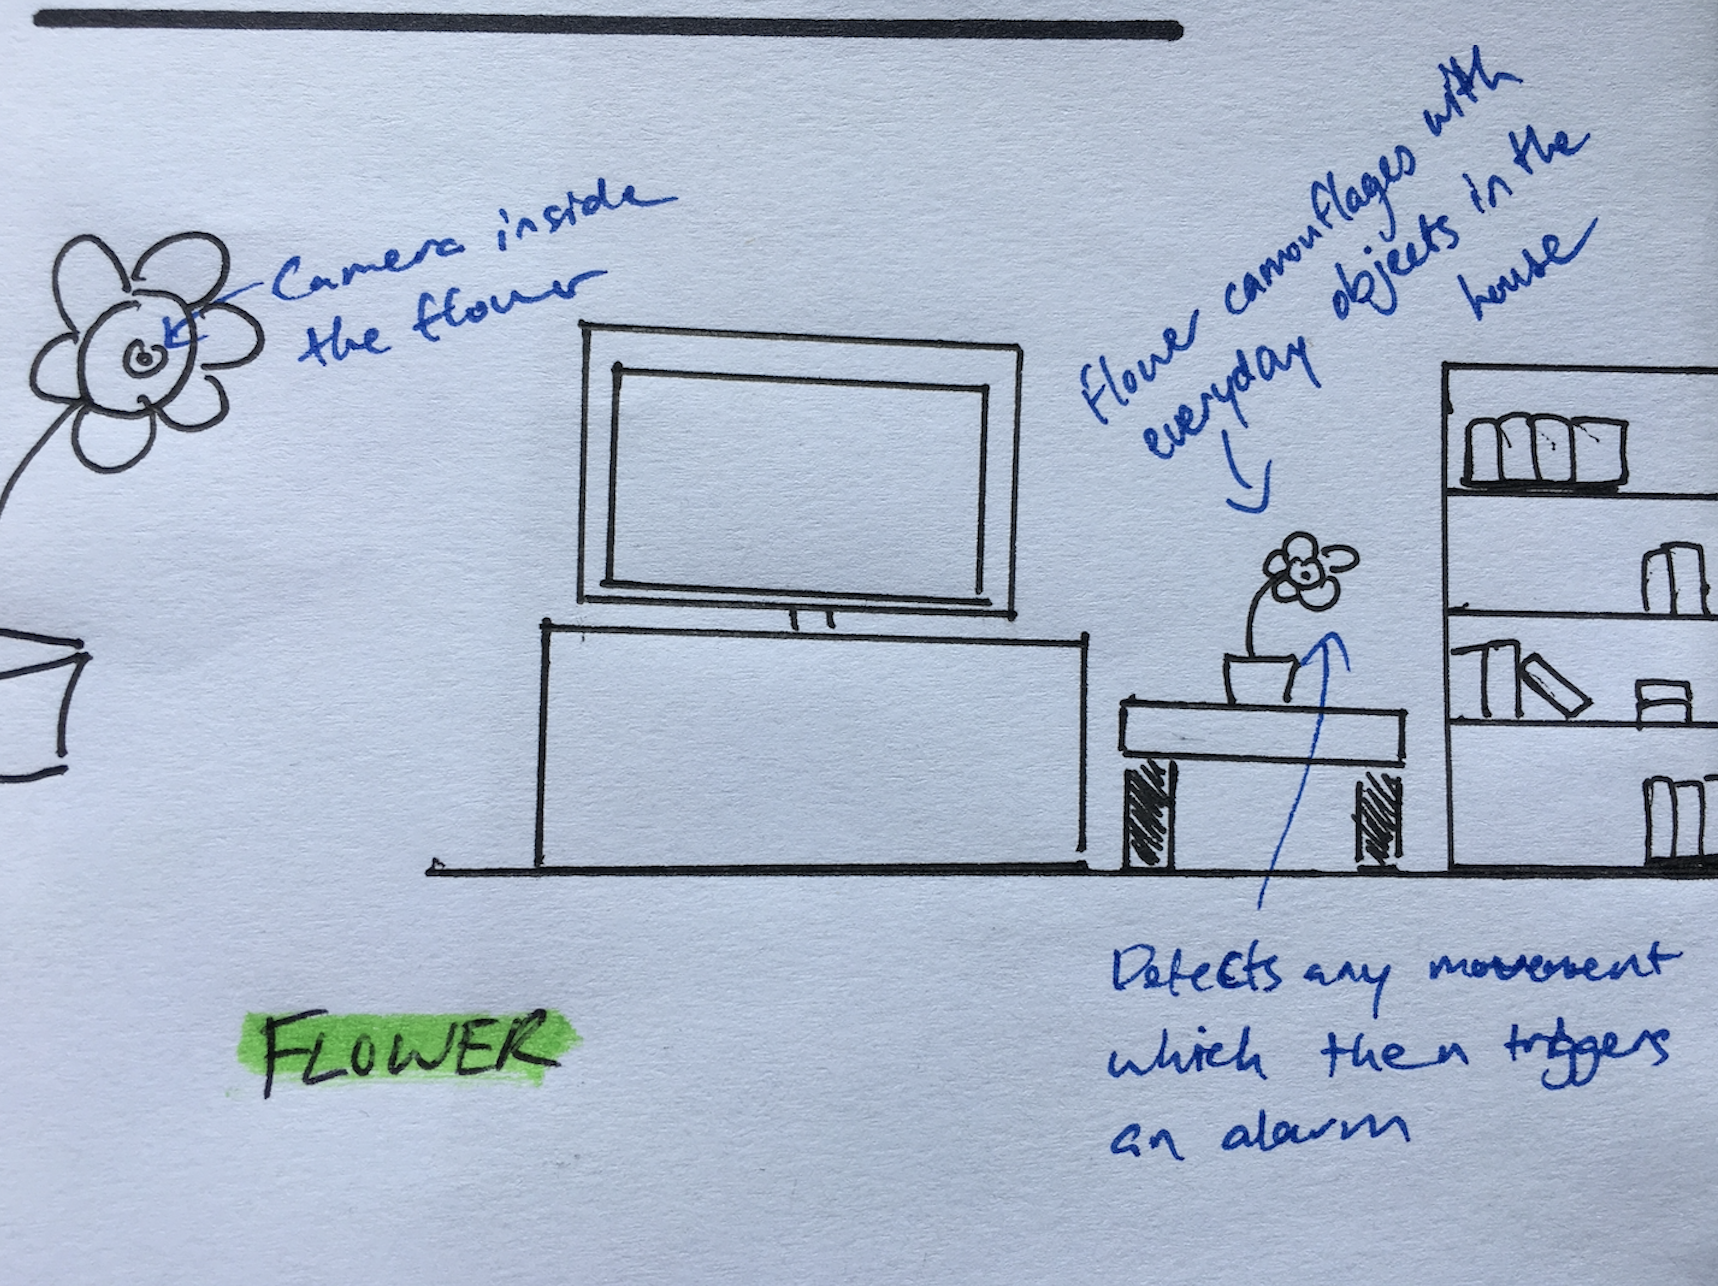 Camera inside
the flower
Flower cammouflages with
everyday objects in the
house
Detects any movement
which then triggers
an alarm
FLOWER